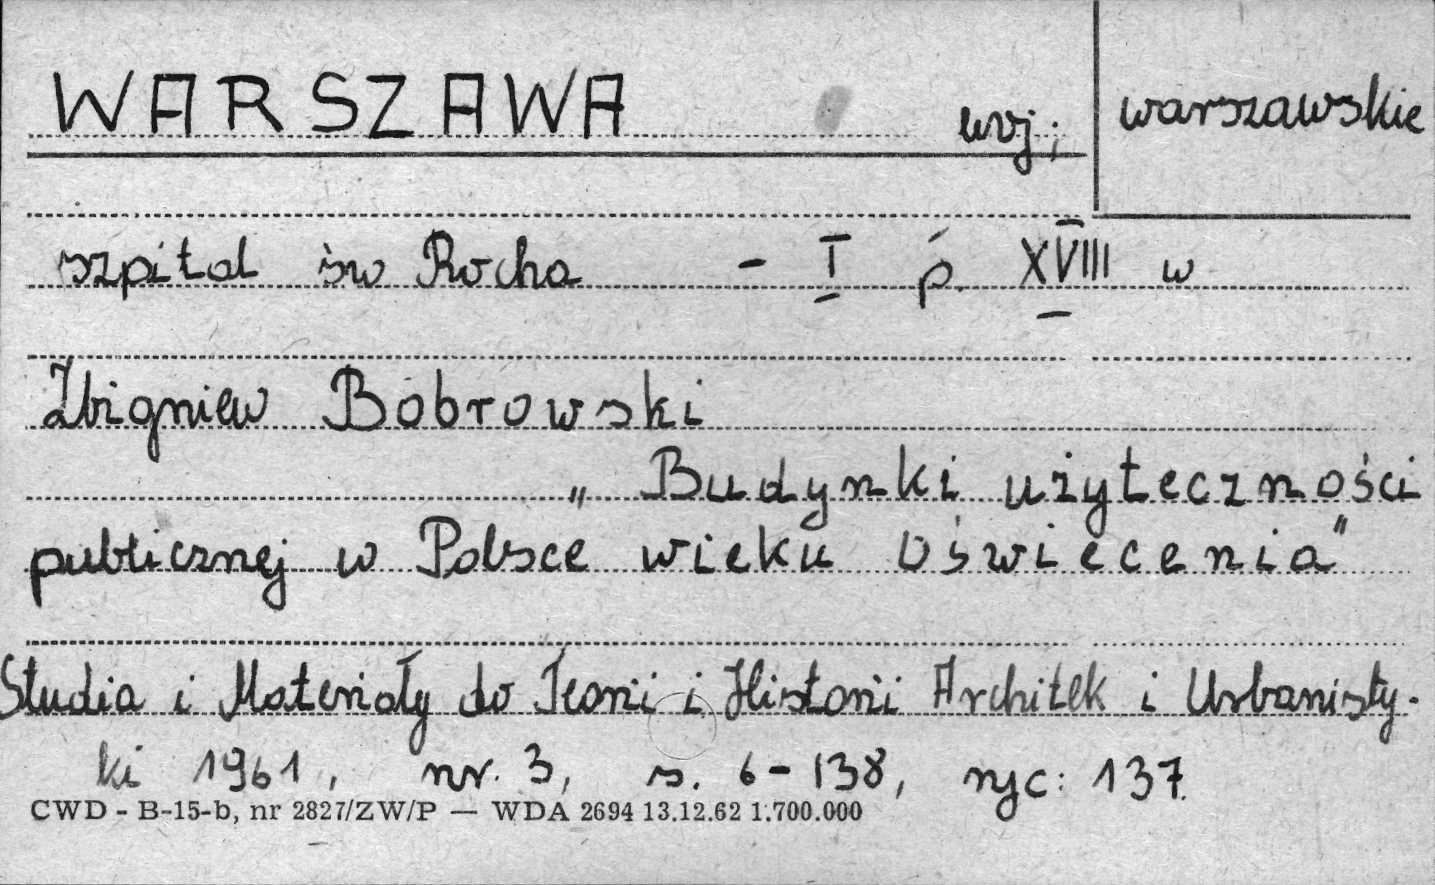 WARSZAWA woj; warszawskie
szpital św Rocha - I p. XVIII w
Zbigniew Bobrowski
„ Budynki użyteczności
publicznej w Polsce wieku Oświecenia"
Studia i Materiały do Teorii i Historii Architek i Urbanisty-
ki 1961, nr. 3, s. 6-138, ryc: 137.
CWD - B-15-b, nr 2827/ZW/P — WDA 2694 13.12.62 1.700.000